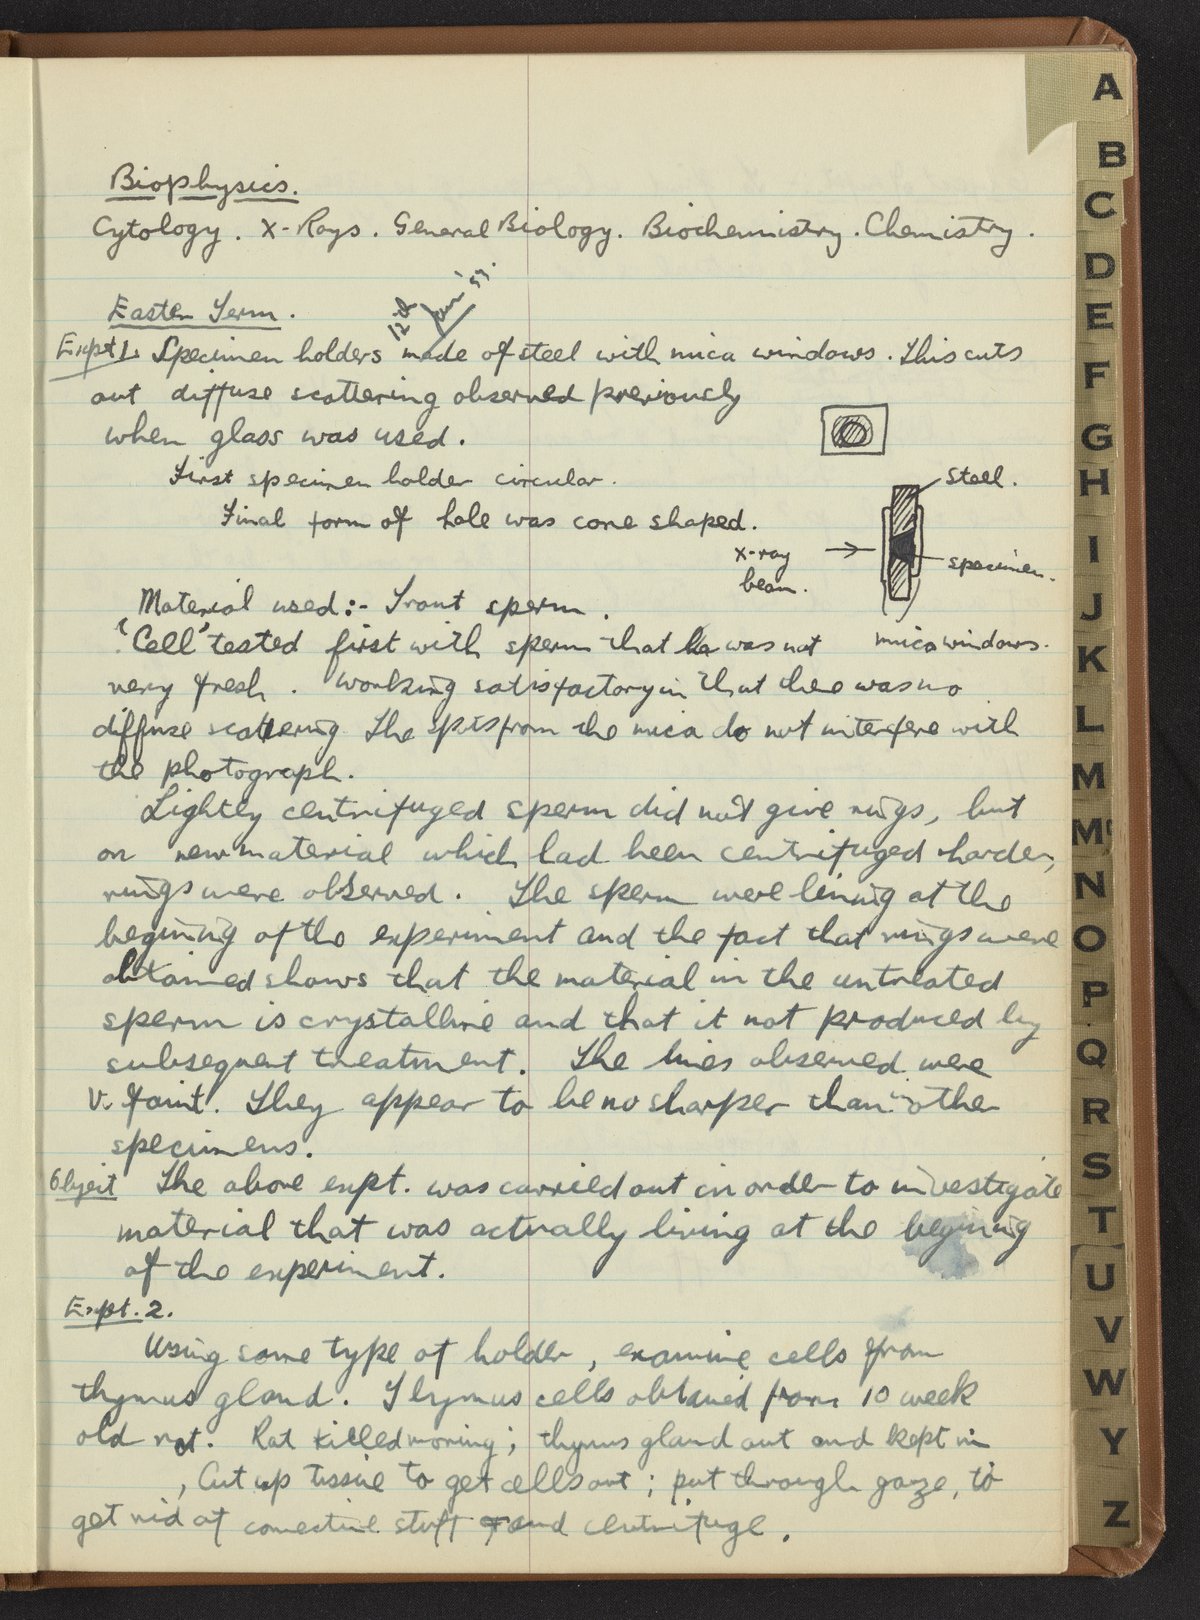 Biophysics.
Cytology. X-Rays. General Biology. Biochemistry. Chemistry.
Easter Term.
12th Jan' 51.
Expt 1. Specimen holders made of steel with mica windows. This cuts
out diffuse scattering observed previously
when glass was used.
First specimen holder circular.
Final form of hole was cone shaped.
Steel.
X-ray
beam.
specimen.
mica windows.
Material used:- Trout sperm.
"Cell" tested first with sperm that was not
very fresh. Working satisfactory in that there was no
diffuse scattering. The spots from the mica do not interfere with
the photograph.
Lightly centrifuged sperm did not give rings, but
on new material which had been centrifuged harder,
rings were observed. The sperm were living at the
begining of the experiment and the fact that rings were
obtained shows that the material in the untreated
sperm is crystalline and that it not produced by
subsequent treatment. The lines observed were
v. faint. They appear to be no sharper than in other
specimens.
Object The above expt. was carried out in order to investigate
material that was actually living at the begining
of the experiment.
Expt. 2.
Using same type of holder, examine cells from
thymus gland. Thymus cells obtained from 10 week
old rat. Rat killed morning; thymus gland out and kept in
, Cut up tissue to get cells out; put through gauze, to
get rid of connective stuff and centrifuge.
A
B
C
D
E
F
G
H
I
J
K
L
M
Mc
N
O
P
Q
R
S
T
U
V
W
Y
Z